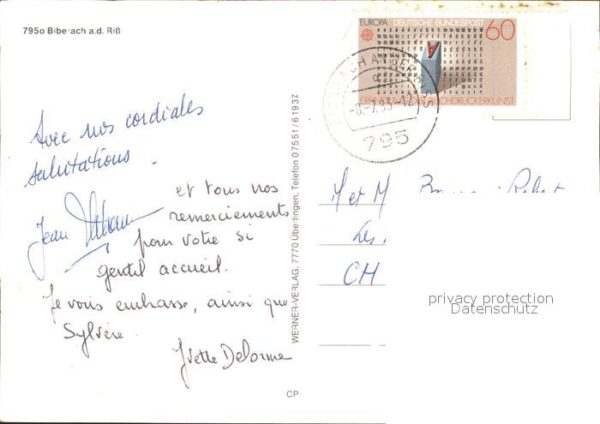 795o Biberach a.d. Riß
Avec nos cordiales
salutations.
Jean
et tous nos
remerciements
pour votre si
gentil accueil.
Je vous embrasse, ainsi que
Sylvère.
Yvette Delorme
CP
WERNER-VERLAG, 7770 Überlingen, Telefon 07551/61937
EUROPA DEUTSCHE BUNDESPOST 60
BUCHDRUCKERKUNST
BIBERACH AN DER RISS
d
-8.-7.83-12
795
M et M
CH
privacy protection
Datenschutz